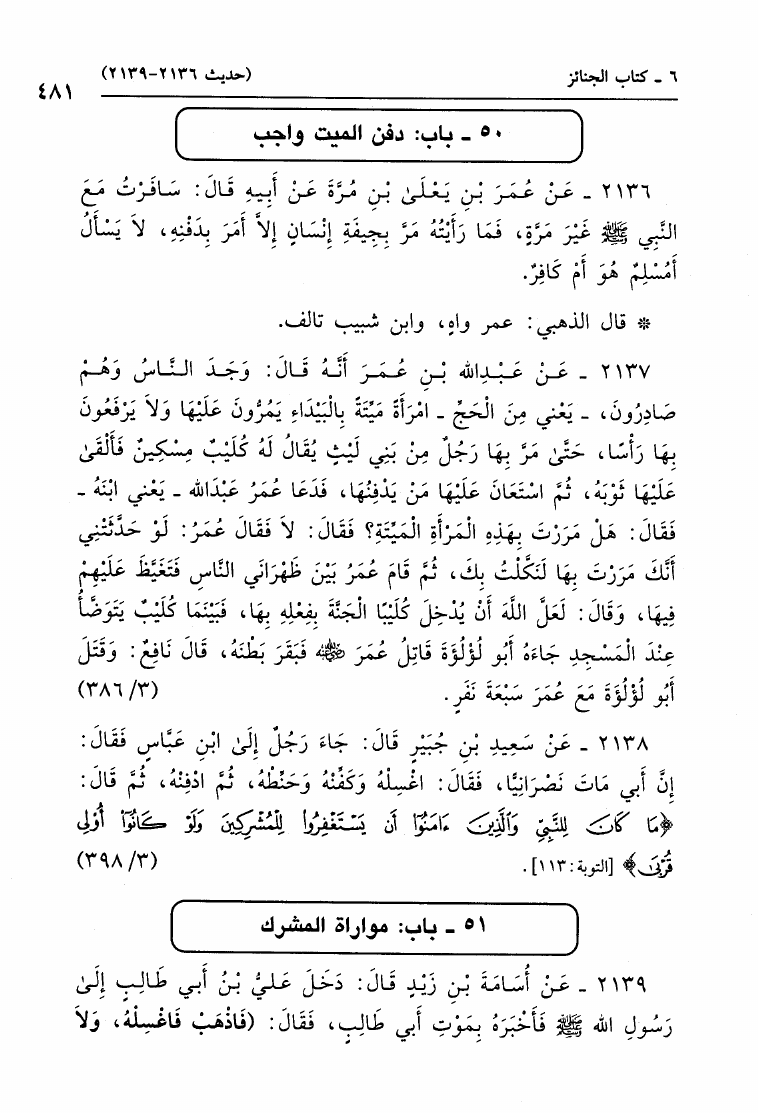 ٦ ـ كتاب الجنائز (حديث ٢١٣٦-٢١٣٩)
٤٨١
٥٠ ـ باب: دفن الميت واجب
٢١٣٦ ـ عَنْ عُمَرَ بْنِ يَعْلَىٰ بْنِ مُرَّةَ عَنْ أَبِيهِ قَالَ: سَافَرْتُ مَعَ
النَّبِي ﷺ غَيْرَ مَرَّةٍ، فَمَا رَأَيْتُهُ مَرَّ بِجِيفَةِ إِنْسَانٍ إِلاَّ أَمَرَ بِدَفْنِهِ، لاَ يَسْأَلُ
أَمُسْلِمٌ هُوَ أَمْ كَافِرٌ.
* قال الذهبي: عمر واهٍ، وابن شبيب تالف.
٢١٣٧ ـ عَـنْ عَـبْـدِالله بْـنِ عُـمَـرَ أَنَّـهُ قَـالَ: وَجَـدَ الـنَّـاسُ وَهُـمْ
صَادِرُونَ، ـ يَعْني مِنَ الْحَجِّ ـ امْرَأَةً مَيِّتَةً بِالْبَيْدَاءِ يَمُرُّونَ عَلَيْهَا وَلاَ يَرْفَعُونَ
بِهَا رَأْسًا، حَتَّىٰ مَرَّ بِهَا رَجُلٌ مِنْ بَنِي لَيْثٍ يُقَالُ لَهُ كُلَيْبٌ مِسْكِينٌ فَأَلْقَىٰ
عَلَيْهَا ثَوْبَهُ، ثُمَّ اسْتَعَانَ عَلَيْهَا مَنْ يَدْفِنُهَا، فَدَعَا عُمَرُ عَبْدَالله ـ يَعْني ابْنَهُ ـ
فَقَالَ: هَلْ مَرَرْتَ بِهَذِهِ الْمَرْأَةِ الْمَيِّتَةِ؟ فَقَالَ: لاَ فَقَالَ عُمَرُ: لَوْ حَدَّثْتَنِي
أَنَّكَ مَرَرْتَ بِهَا لَنَكَّلْتُ بِكَ، ثُمَّ قَامَ عُمَرُ بَيْنَ ظَهْرَانَي النَّاسِ فَتَغَيَّظَ عَلَيْهِمْ
فِيهَا، وَقَالَ: لَعَلَّ اللَّهَ أَنْ يُدْخِلَ كُلَيْبًا الْجَنَّةَ بِفِعْلِهِ بِهَا، فَبَيْنَمَا كُلَيْبٌ يَتَوَضَّأُ
عِنْدَ الْمَسْجِدِ جَاءَهُ أَبُو لُؤْلُؤَةَ قَاتِلُ عُمَرَ رضي الله عنه فَبَقَرَ بَطْنَهُ، قَالَ نَافِعٌ: وَقَتَلَ
أَبُو لُؤْلُؤَةَ مَعَ عُمَرَ سَبْعَةَ نَفَرٍ. (٣/ ٣٨٦)
٢١٣٨ ـ عَنْ سَعِيدِ بْنِ جُبَيْرٍ قَالَ: جَاءَ رَجُلٌ إِلَىٰ ابْنِ عَبَّاسٍ فَقَالَ:
إِنَّ أَبي مَاتَ نَصْرَانِيًّا، فَقَالَ: اغْسِلْهُ وَكَفِّنْهُ وَحَنِّطْهُ، ثُمَّ ادْفِنْهُ، ثُمَّ قَالَ:
﴿مَا كَانَ لِلنَّبِيِّ وَٱلَّذِينَ ءَامَنُوٓا أَن يَسْتَغْفِرُوا لِلْمُشْرِكِينَ وَلَوْ كَانُوٓا أُوْلِى
قُرْبَىٰ﴾ [التوبة: ١١٣]. (٣/ ٣٩٨)
٥١ ـ باب: مواراة المشرك
٢١٣٩ ـ عَنْ أُسَامَةَ بْنِ زَيْدٍ قَالَ: دَخَلَ عَليُّ بْنُ أَبي طَالِبٍ إِلَىٰ
رَسُولِ الله ﷺ فَأَخْبَرَهُ بِمَوْتِ أَبي طَالِبٍ، فَقَالَ: (فَاذْهَبْ فَاغْسِلْهُ، وَلاَ